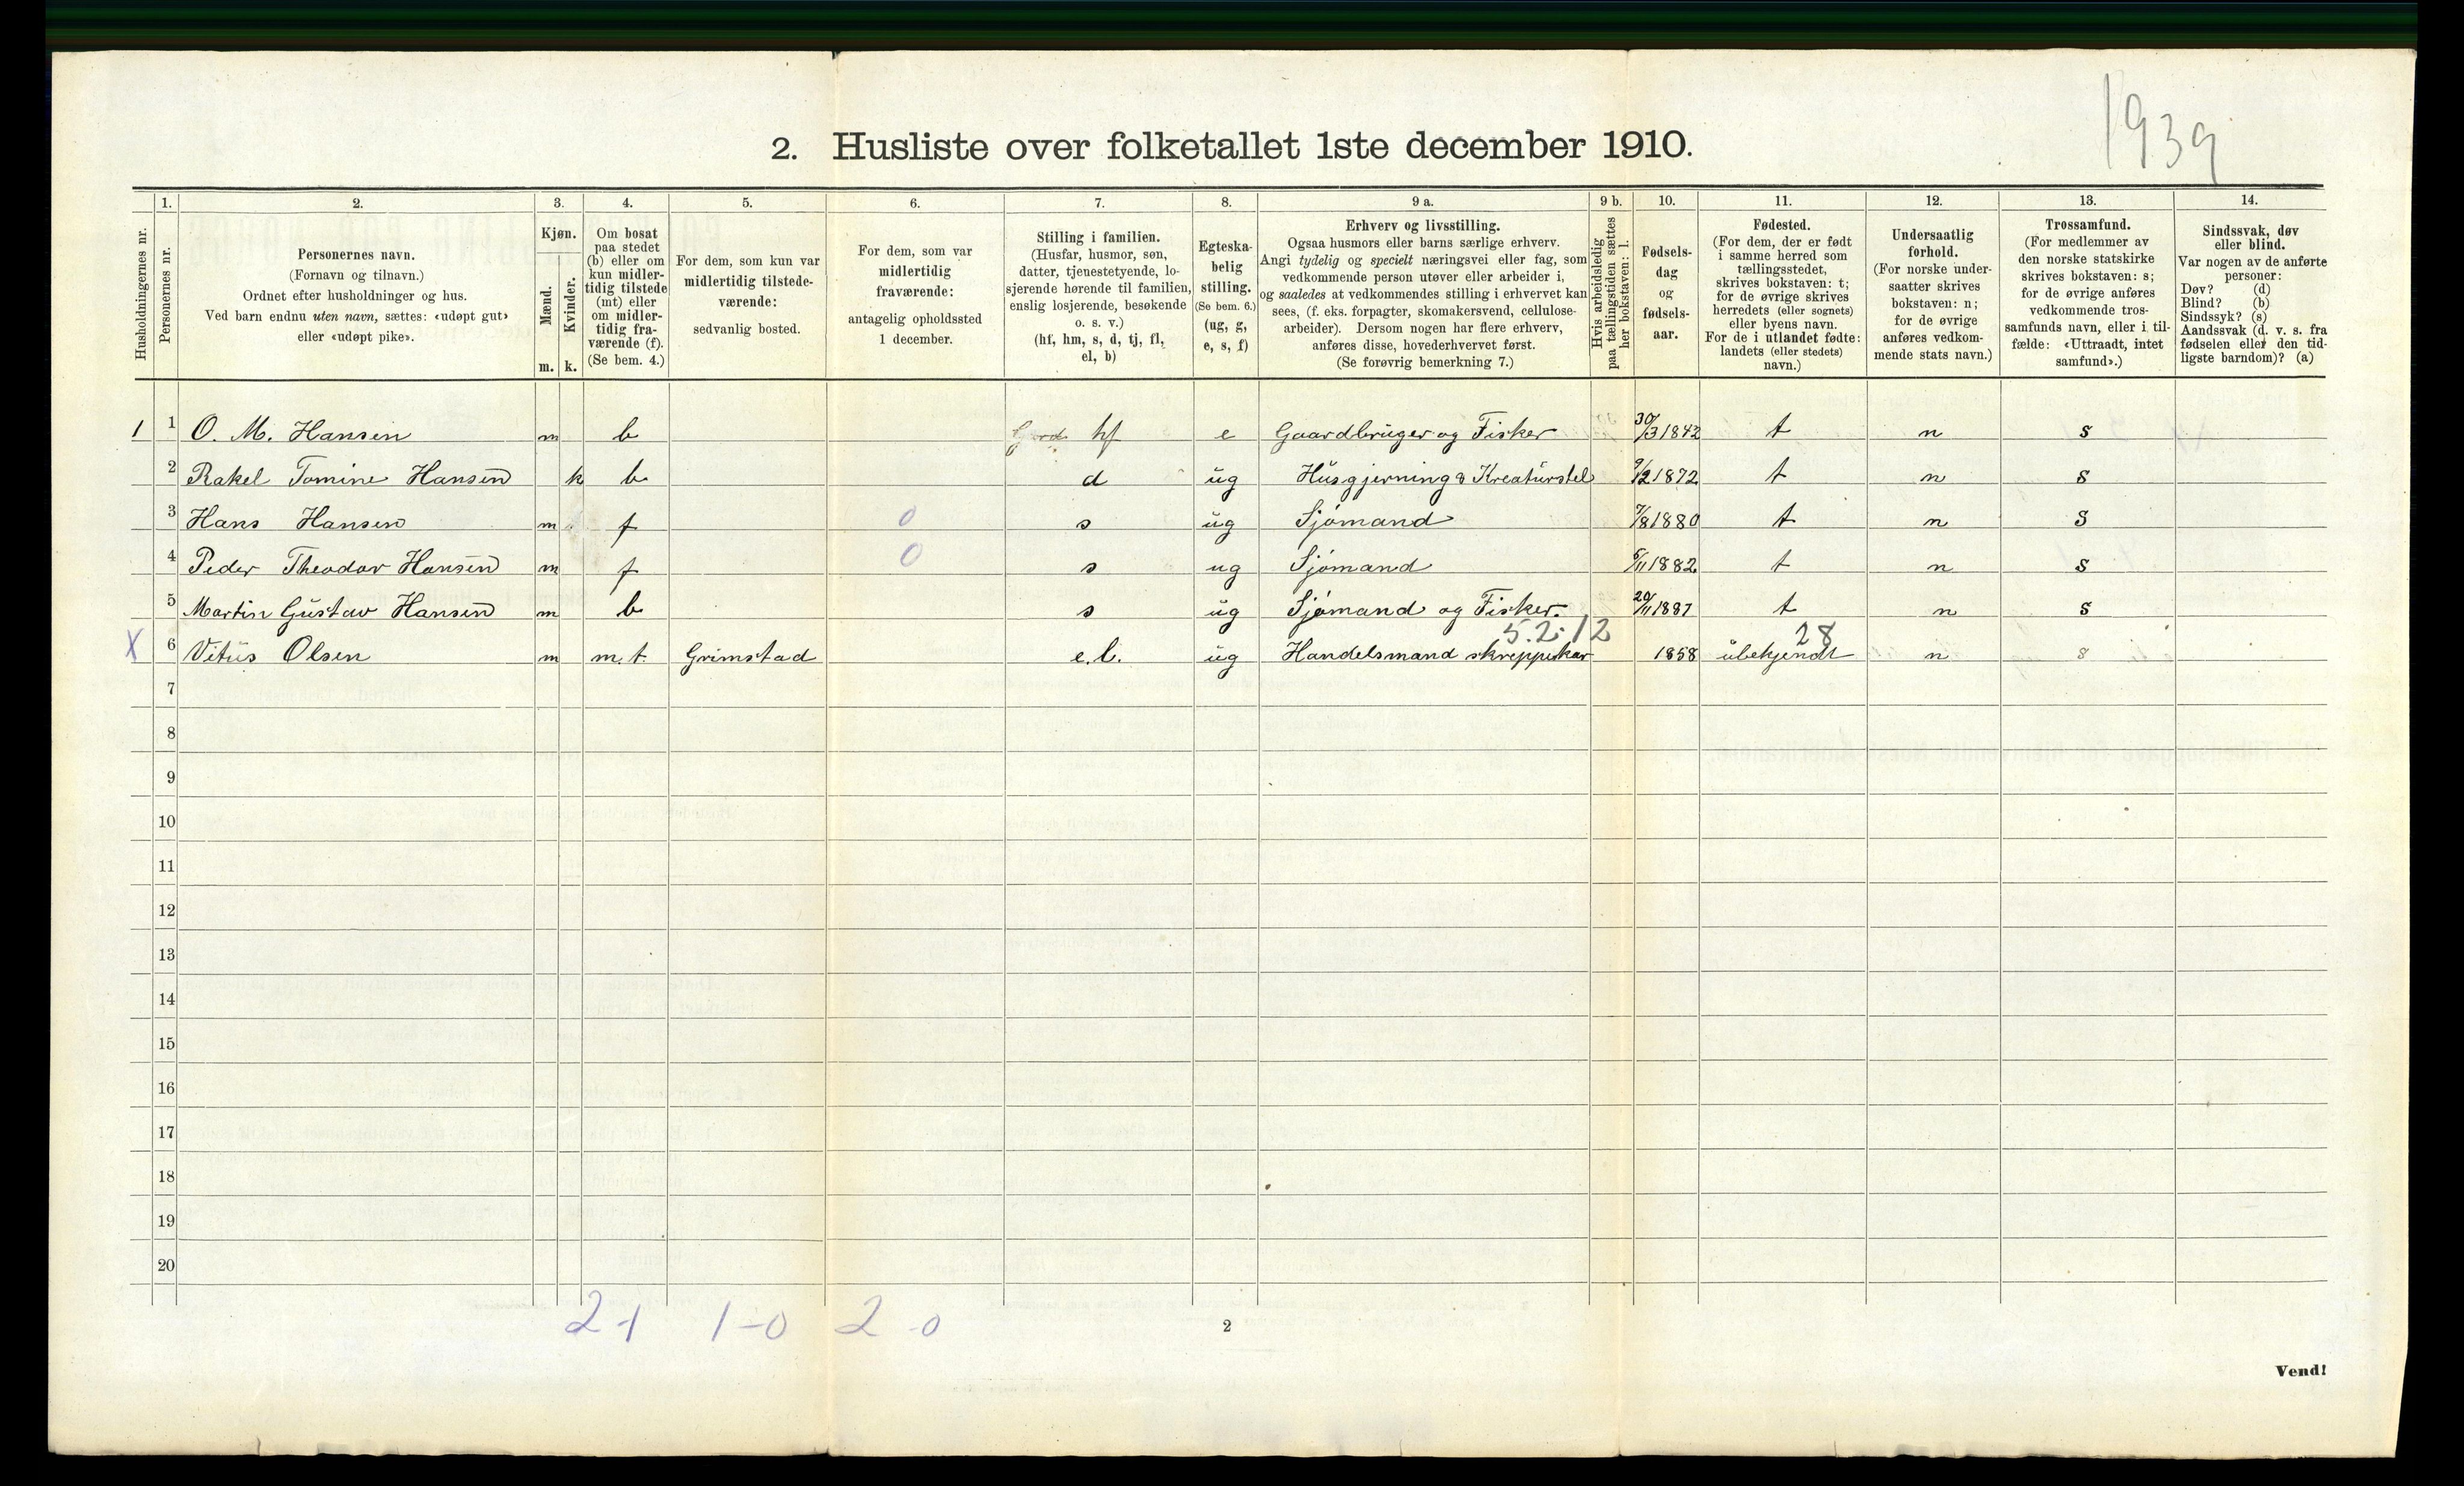 1939
2. Husliste over folketallet 1ste december 1910.
1. 2. 3. 4. 5. 6. 7. 8. 9 a. 9 b. 10. 11. 12. 13. 14.
Husholdningernes nr.
Personernes nr.
Personernes navn.
(Fornavn og tilnavn.)
Ordnet efter husholdninger og hus.
Ved barn endnu uten navn, sættes: «udøpt gut»
eller «udøpt pike».
Kjøn.
Mænd.
Kvinder.
m. k.
Om bosat
paa stedet
(b) eller om
kun midler-
tidig tilstede
(mt) eller
om midler-
tidig fra-
værende (f).
(Se bem. 4.)
For dem, som kun var
midlertidig tilstede-
værende:
sedvanlig bosted.
For dem, som var
midlertidig
fraværende:
antagelig opholdssted
1 december.
Stilling i familien.
(Husfar, husmor, søn,
datter, tjenestetyende, lo-
sjerende hørende til familien,
enslig losjerende, besøkende
o. s. v.)
(hf, hm, s, d, tj, fl,
el, b)
Egteska-
belig
stilling.
(Se bem. 6.)
(ug, g,
e, s, f)
Erhverv og livsstilling.
Ogsaa husmors eller barns særlige erhverv.
Angi tydelig og specielt næringsvei eller fag, som
vedkommende person utøver eller arbeider i,
og saaledes at vedkommendes stilling i erhvervet kan
sees, (f. eks. forpagter, skomakersvend, cellulose-
arbeider). Dersom nogen har flere erhverv,
anføres disse, hovederhvervet først.
(Se forøvrig bemerkning 7.)
Hvis arbeidsledig
paa tællingstiden sættes
her bokstaven: l.
Fødsels-
dag
og
fødsels-
aar.
Fødested.
(For dem, der er født
i samme herred som
tællingsstedet,
skrives bokstaven: t;
for de øvrige skrives
herredets (eller sognets)
eller byens navn.
For de i utlandet fødte:
landets (eller stedets)
navn.)
Undersaatlig
forhold.
(For norske under-
saatter skrives
bokstaven: n;
for de øvrige
anføres vedkom-
mende stats navn.)
Trossamfund.
(For medlemmer av
den norske statskirke
skrives bokstaven: s;
for de øvrige anføres
vedkommende tros-
samfunds navn, eller i til-
fælde: «Uttraadt, intet
samfund».)
Sindssvak, døv
eller blind.
Var nogen av de anførte
personer:
Døv? (d)
Blind? (b)
Sindssyk? (s)
Aandssvak (d. v. s. fra
fødselen eller den tid-
ligste barndom)? (a)
1 1 O. M. Hansen m b hf e Gaardbruger og Fisker 30/3 1842 t n s
2 Rakel Tomine Hansen k b d ug Husgjerning & Kreaturstel 9/2 1872 t n s
3 Hans Hansen m f 0 s ug Sjømand 7/8 1880 t n s
4 Peder Theodor Hansen m f 0 s ug Sjømand 5/11 1882 t n s
5 Martin Gustav Hansen m b s ug Sjømand og Fisker. 20/11 1887 t n s
5.2.12 28
X 6 Vitus Olsen m m.t. Grimstad e.l. ug Handelsmand skreppekar 1858 ubekjendt n s
7
8
9
10
11
12
13
14
15
16
17
18
19
20
2-1 1-0 2-0
2
Vend!